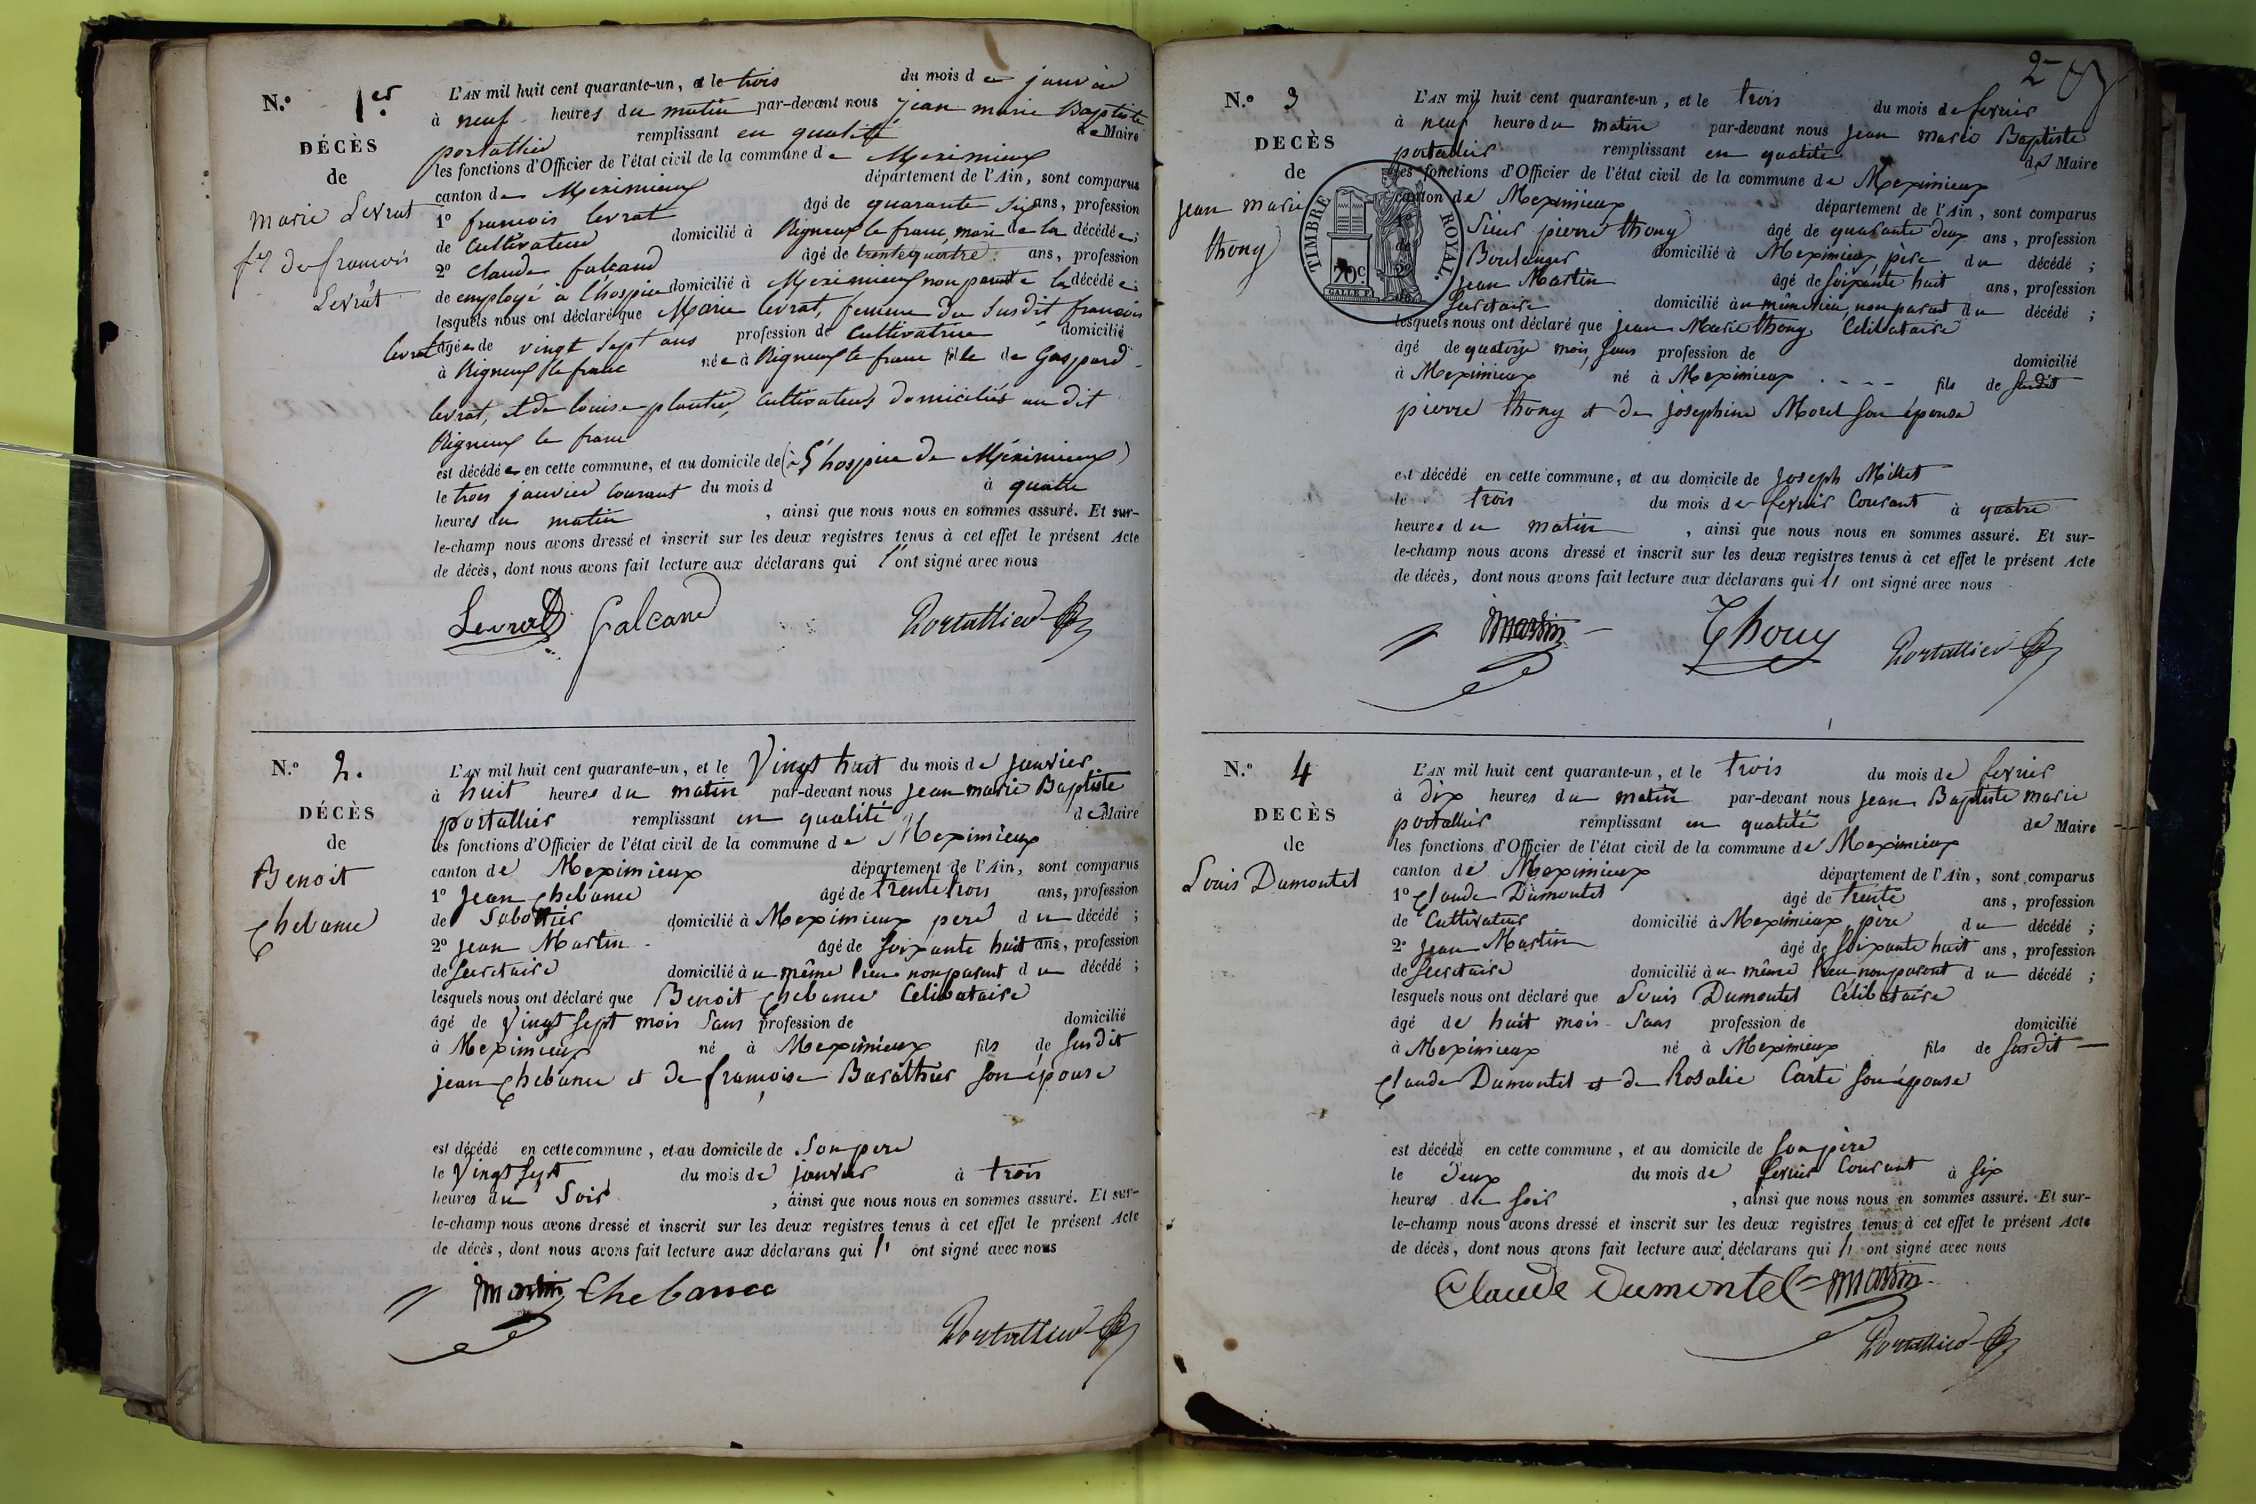 N.º 1er
DÉCÈS
de
Marie Levrat
fe de francois
Levrat
L'AN mil huit cent quarante-un, et le trois du mois de janvier
à neuf heures du matin par-devant nous jean marie Baptiste
portallier remplissant en qualité de Maire
les fonctions d'Officier de l'état civil de la commune de Meximieux
canton de Meximieux département de l'Ain, sont comparus
1º francois levrat âgé de quarante six ans, profession
de Cultivateur domicilié à Rigneux le franc, mari de la décédée;
2º Claude falcand âgé de trente quatre ans, profession
de employé à l'hospice domicilié à Meximieux non parent de la décédée;
lesquels nous ont déclaré que Marie levrat, femme du susdit francois
levrat âgée de vingt sept ans profession de Cultivatrice domicilié
à Rigneux le franc née à Rigneux le franc fille de Gaspard
levrat, et de louise plantier, Cultivateurs domiciliés au dit
Rigneux le franc
est décédée en cette commune, et au domicile de (à l'hospice de Méximieux)
le trois janvier courant du mois d à quatre
heures du matin , ainsi que nous nous en sommes assuré. Et sur-
le-champ nous avons dressé et inscrit sur les deux registres tenus à cet effet le présent Acte
de décès, dont nous avons fait lecture aux déclarans qui l'ont signé avec nous
Levrat falcand Portallier
N.º 2.
DÉCÈS
de
Benoit
Chebance
L'AN mil huit cent quarante-un, et le Vingt huit du mois de janvier
à huit heures du matin par-devant nous Jean marie Baptiste
portallier remplissant en qualité de Maire
les fonctions d'Officier de l'état civil de la commune de Meximieux
canton de Meximieux département de l'Ain, sont comparus
1º Jean Chebance âgé de trente trois ans, profession
de Sabottier domicilié à Meximieux pere du décédé;
2º Jean Martin âgé de soixante huit ans, profession
de secretaire domicilié à u même lieu non parent du décédé;
lesquels nous ont déclaré que Benoit Chebance Célibataire
âgé de Vingt sept mois Sans profession de domicilié
à Meximieux né à Meximieux fils de susdit
jean Chebance et de françoise Barathier son épouse
est décédé en cette commune, et au domicile de Son pere
le Vingt sept du mois de janvier à trois
heures du Soir , ainsi que nous nous en sommes assuré. Et sur-
le-champ nous avons dressé et inscrit sur les deux registres tenus à cet effet le présent Acte
de décès, dont nous avons fait lecture aux déclarans qui l' ont signé avec nous
Martin Chebance
Portallier
2
N.º 3
DECÈS
de
jean marie
thony
TIMBRE ROYAL.
20 c.
L'AN mil huit cent quarante-un, et le trois du mois de fevrier
à neuf heure du matin par-devant nous Jean marie Baptiste
portallier remplissant en qualité de Maire
les fonctions d'Officier de l'état civil de la commune de Meximieux
canton de Meximieux département de l'Ain, sont comparus
1º Sieur pierre thony âgé de quarante deux ans, profession
de Boulanger domicilié à Meximieux, père du décédé;
2º Jean Martin âgé de soixante huit ans, profession
de Secretaire domicilié au même lieu, non parent du décédé;
lesquels nous ont déclaré que jean Marie thony Celibataire
âgé de quatorze mois, sans profession de domicilié
à Meximieux né à Meximieux fils de susdit
pierre thony et de josephine Morel son épouse
est décédé en cette commune, et au domicile de Joseph Millet
le trois du mois de fevrier Courant à quatre
heures du matin , ainsi que nous nous en sommes assuré. Et sur-
le-champ nous avons dressé et inscrit sur les deux registres tenus à cet effet le présent Acte
de décès, dont nous avons fait lecture aux déclarans qui l' ont signé avec nous
Martin Thony Portallier
N.º 4
DECÈS
de
Louis Dumontel
L'AN mil huit cent quarante-un, et le trois du mois de fevrier
à dix heures du matin par-devant nous Jean Baptiste marie
portallier remplissant en qualité de Maire
les fonctions d'Officier de l'état civil de la commune de Meximieux
canton de Meximieux département de l'Ain, sont comparus
1º Claude Dumontel âgé de trente ans, profession
de Cultivateur domicilié à Meximieux, père du décédé;
2º Jean Martin âgé de soixante huit ans, profession
de secretaire domicilié à u même lieu non parent du décédé;
lesquels nous ont déclaré que Louis Dumontel Célibataire
âgé de huit mois Sans profession de domicilié
à Meximieux né à Meximieux fils de susdit
Claude Dumontel et de Rosalie Carte son épouse
est décédé en cette commune, et au domicile de son père
le deux du mois de fevrier Courant à six
heures du soir , ainsi que nous nous en sommes assuré. Et sur-
le-champ nous avons dressé et inscrit sur les deux registres tenus à cet effet le présent Acte
de décès, dont nous avons fait lecture aux déclarans qui l' ont signé avec nous
Claude Dumontel Martin
Portallier